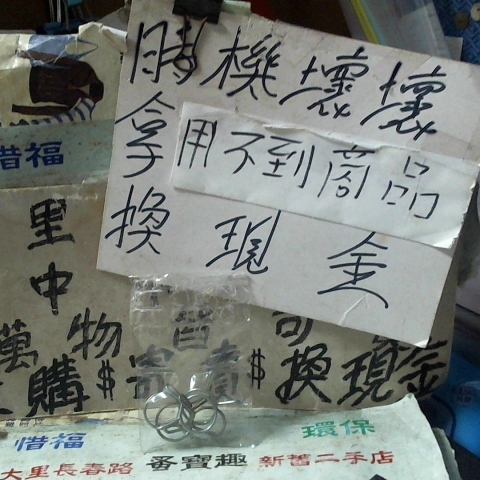 時機壞壞
拿
用不到商品
換現金
惜福
里
中
萬物皆可
購$寄賣$換現金
惜福
環保
大里長春路
番寶趣
新舊二手店